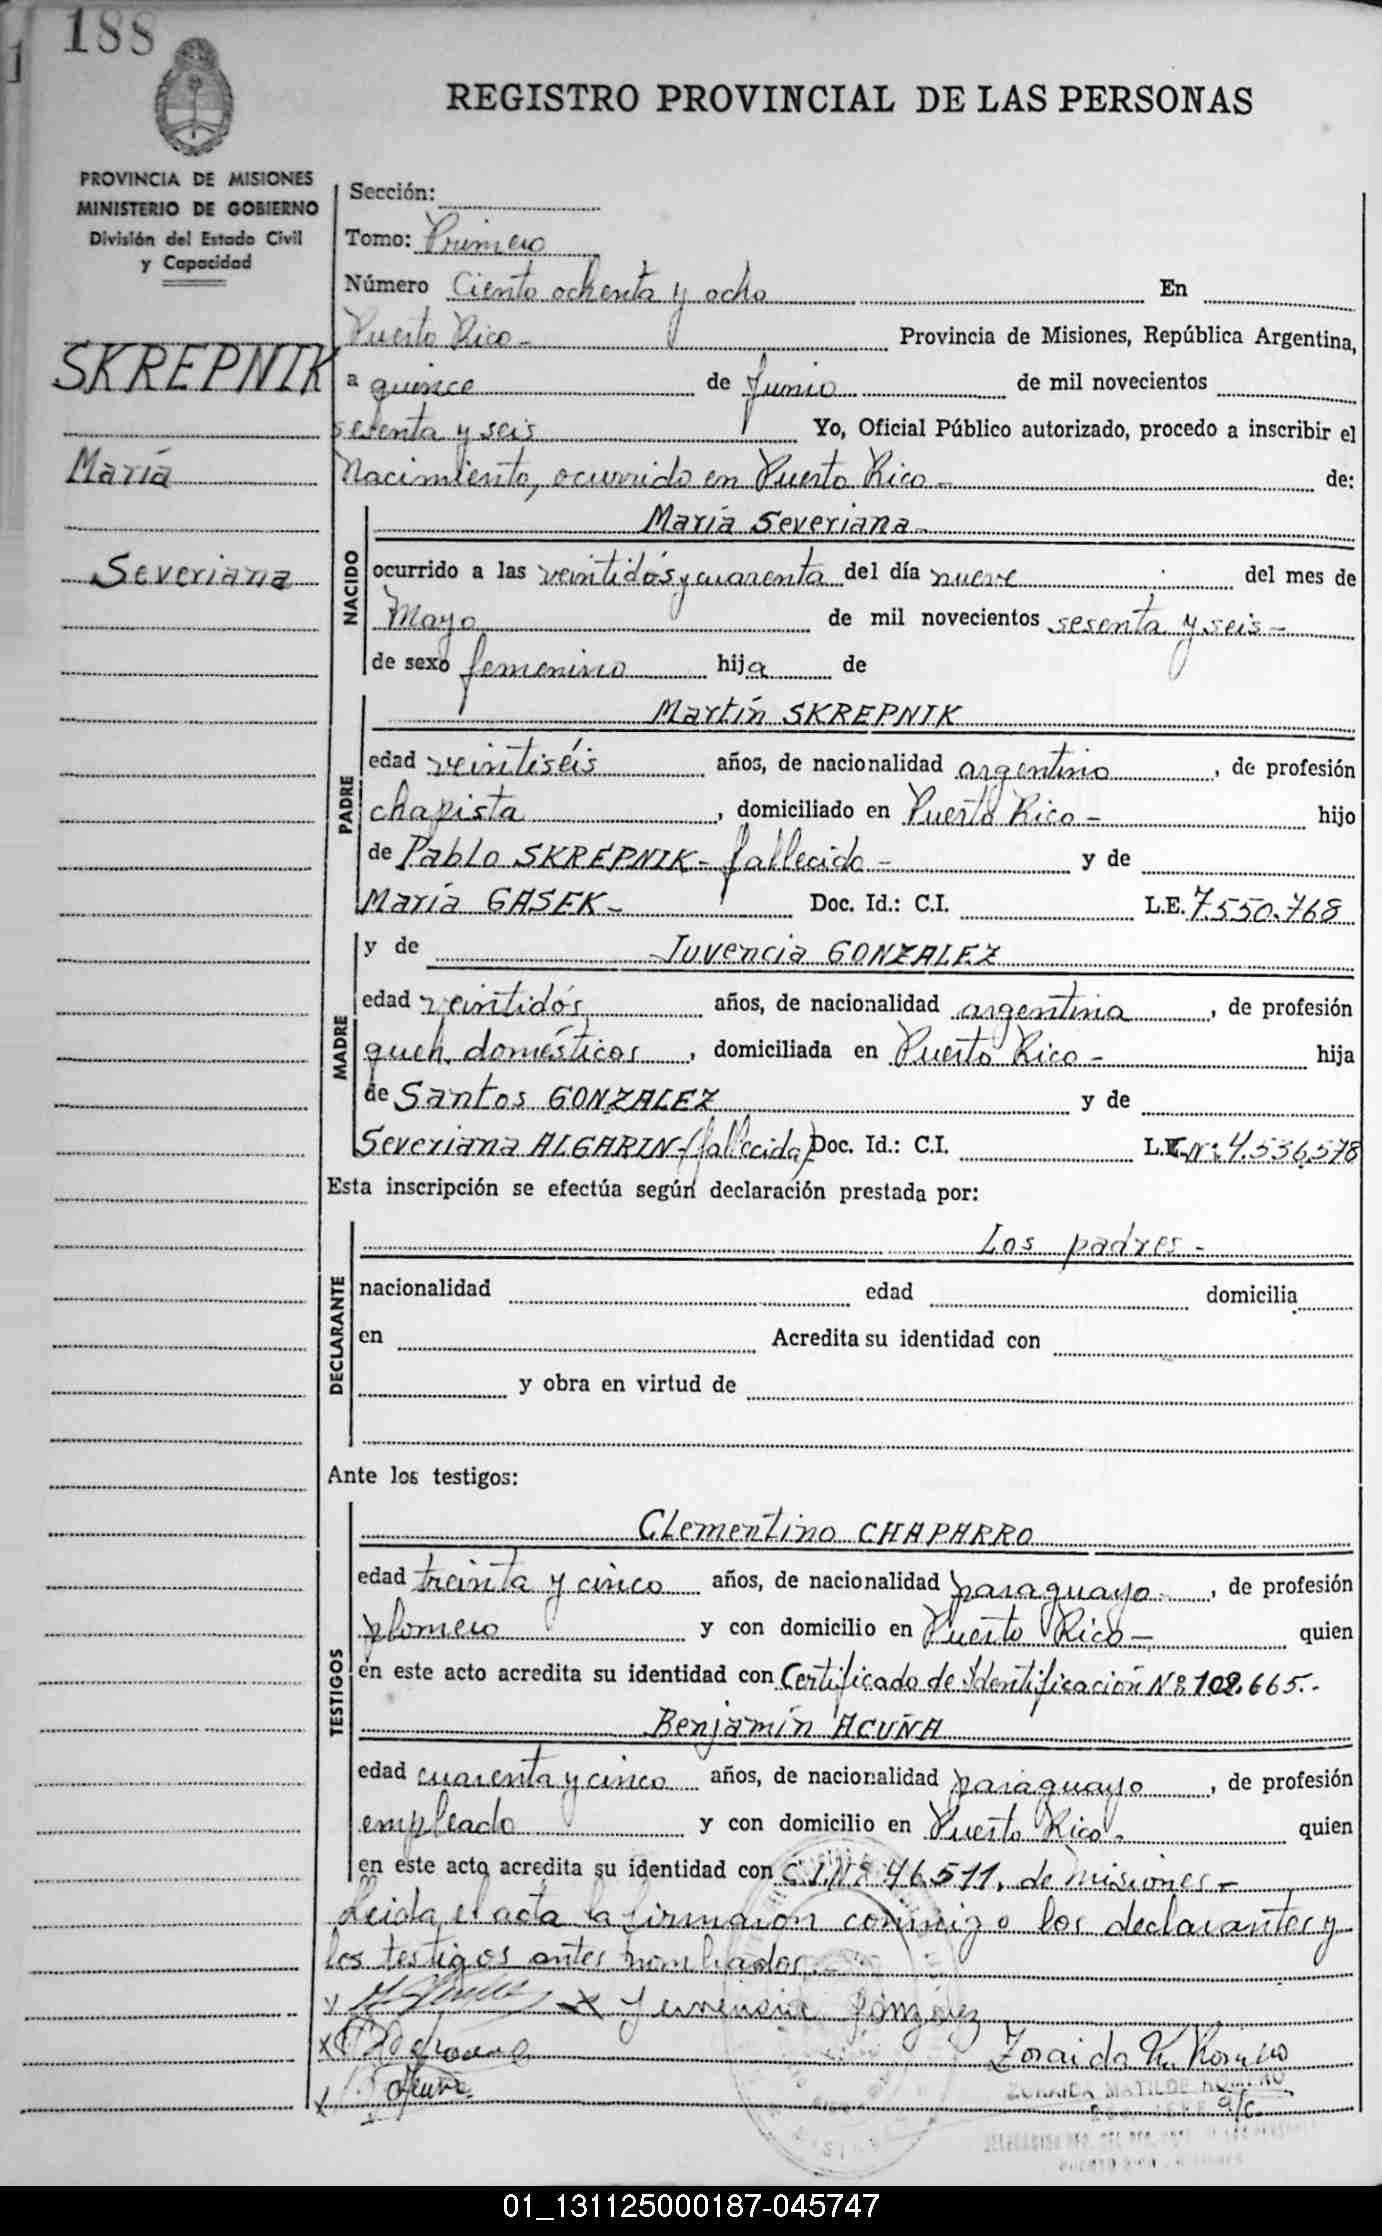 188
REGISTRO PROVINCIAL DE LAS PERSONAS
PROVINCIA DE MISIONES
MINISTERIO DE GOBIERNO
División del Estado Civil
y Capacidad
SKREPNIK
María
Severiana
Sección:
Tomo: Primero
Número Ciento ochenta y ocho En
Puerto Rico - Provincia de Misiones, República Argentina,
a quince de Junio de mil novecientos
sesenta y seis Yo, Oficial Público autorizado, procedo a inscribir el
Nacimiento, ocurrido en Puerto Rico - de:
NACIDO
María Severiana -
ocurrido a las veintidós y cuarenta del día nueve del mes de
Mayo de mil novecientos sesenta y seis -
de sexo femenino hija de
PADRE
Martín SKREPNIK
edad veintiséis años, de nacionalidad argentino, de profesión
chapista, domiciliado en Puerto Rico - hijo
de Pablo SKREPNIK - fallecido - y de
María GASEK - Doc. Id.: C.I. L.E. 7.550.768
MADRE
y de Juvencia GONZALEZ
edad veintidós años, de nacionalidad argentina, de profesión
queh. domésticos, domiciliada en Puerto Rico - hija
de Santos GONZALEZ y de
Severiana ALGARIN - (fallecida) Doc. Id.: C.I. L. nº: 4.536.578
Esta inscripción se efectúa según declaración prestada por:
DECLARANTE
Los padres -
nacionalidad edad domicilia
en Acredita su identidad con
y obra en virtud de
Ante los testigos:
TESTIGOS
Clementino CHAPARRO
edad treinta y cinco años, de nacionalidad paraguayo -, de profesión
plomero y con domicilio en Puerto Rico - quien
en este acto acredita su identidad con Certificado de Identificación Nº 102.665.-
Benjamín ACUÑA
edad cuarenta y cinco años, de nacionalidad paraguayo, de profesión
empleado y con domicilio en Puerto Rico - quien
en este acto acredita su identidad con C.I. Nº 46.511, de Misiones -
Leida el acta la firmaron conmigo los declarantes y
los testigos antes nombrados.-
X Juvencia González
Zoraida M. Romero
ZORAIDA MATILDE ROMERO
JEFE a/c
01_131125000187-045747